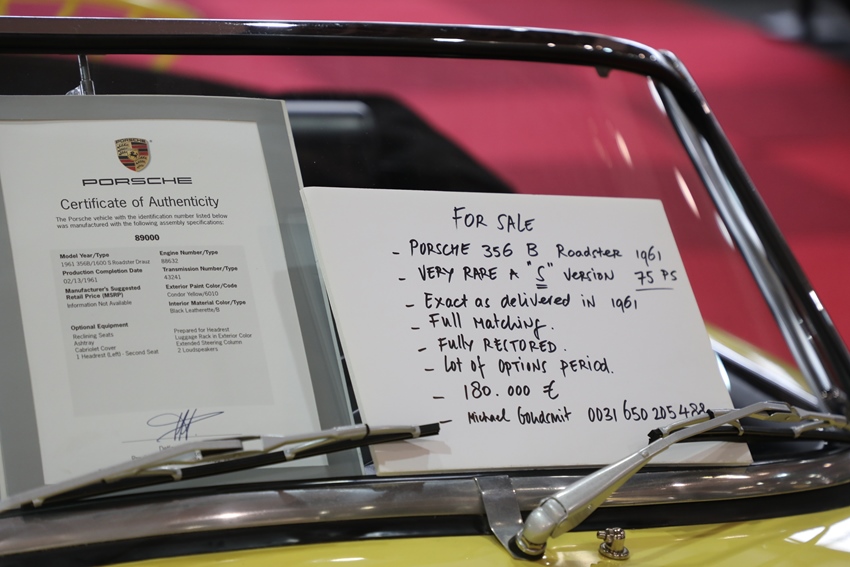 PORSCHE
PORSCHE
Certificate of Authenticity
The Porsche vehicle with the identification number listed below
was manufactured with the following assembly specifications;
89000
Model Year/Type
1961 356B/1600 S Roadster Drauz
Production Completion Date
02/13/1961
Manufacturer's Suggested
Retail Price (MSRP)
Information Not Available
Engine Number/Type
88632
Transmission Number/Type
43241
Exterior Paint Color/Code
Condor Yellow/6010
Interior Material Color/Type
Black Leatherette/B
Optional Equipment
Reclining Seats
Ashtray
Cabriolet Cover
1 Headrest (Left) - Second Seat
Prepared for Headrest
Luggage Rack in Exterior Color
Extended Steering Column
2 Loudspeakers
FOR SALE
- PORSCHE 356 B Roadster 1961
- VERY RARE A "S" VERSION 75 PS
- Exact as delivered IN 1961
- Full Matching.
- Fully RESTORED.
- Lot of OPTIONS PERIOD.
- 180.000 €
- Michael Goudsmit 0031 650 205422